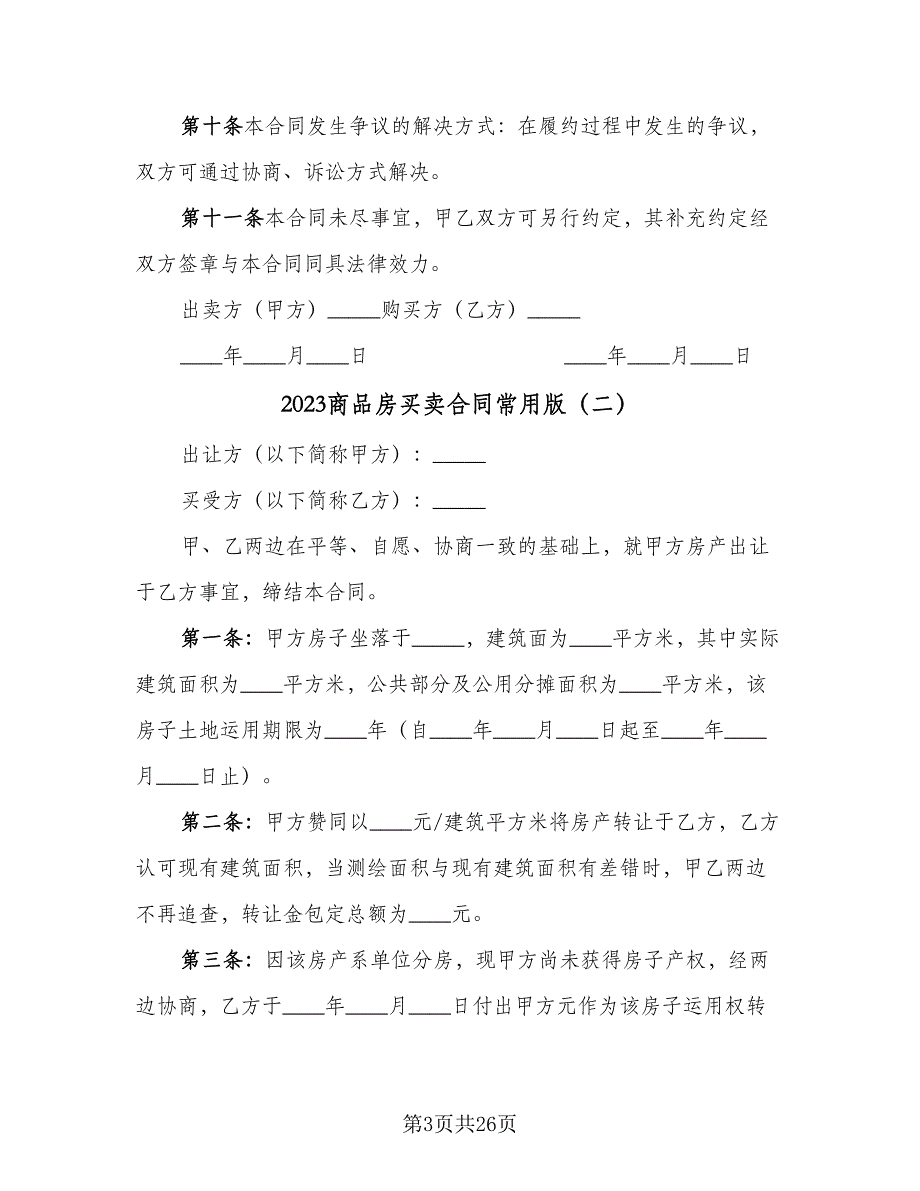 第十条本合同发生争议的解决方式：在履约过程中发生的争议，
双方可通过协商、诉讼方式解决。
第十一条本合同未尽事宜，甲乙双方可另行约定，其补充约定经
双方签章与本合同同具法律效力。
出卖方（甲方）_____购买方（乙方）_____
____年____月____日 ____年____月____日
2023商品房买卖合同常用版（二）
出让方（以下简称甲方）：_____
买受方（以下简称乙方）：_____
甲、乙两边在平等、自愿、协商一致的基础上，就甲方房产出让
于乙方事宜，缔结本合同。
第一条：甲方房子坐落于_____，建筑面为____平方米，其中实际
建筑面积为____平方米，公共部分及公用分摊面积为____平方米，该
房子土地运用期限为____年（自____年____月____日起至____年____
月____日止）。
第二条：甲方赞同以____元/建筑平方米将房产转让于乙方，乙方
认可现有建筑面积，当测绘面积与现有建筑面积有差错时，甲乙两边
不再追查，转让金包定总额为____元。
第三条：因该房产系单位分房，现甲方尚未获得房子产权，经两
边协商，乙方于____年____月____日付出甲方元作为该房子运用权转
第3页共26页